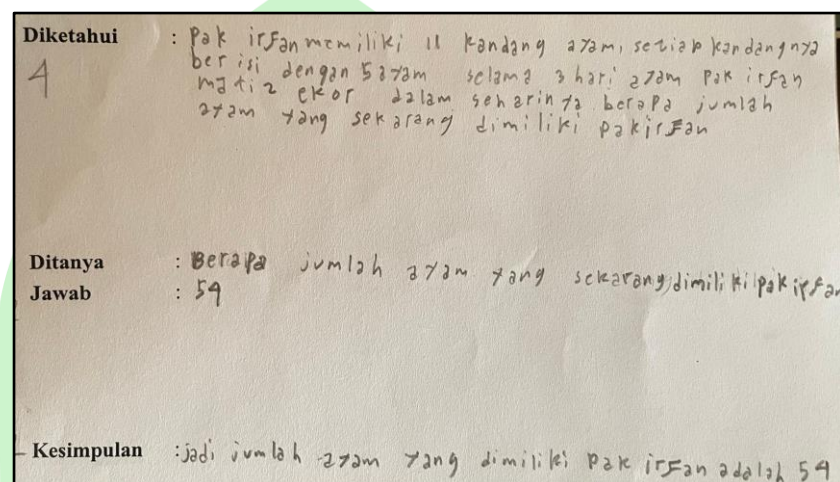 Diketahui : Pak irfan memiliki 11 kandang ayam, setiap kandangnya
4 berisi dengan 5 ayam selama 3 hari ayam Pak irfan
mati 2 ekor dalam seharinya berapa jumlah
ayam yang sekarang dimiliki pak irfan
Ditanya : Berapa jumlah ayam yang sekarang dimiliki pak irfan
Jawab : 59
Kesimpulan : jadi jumlah ayam yang dimiliki Pak irfan adalah 59